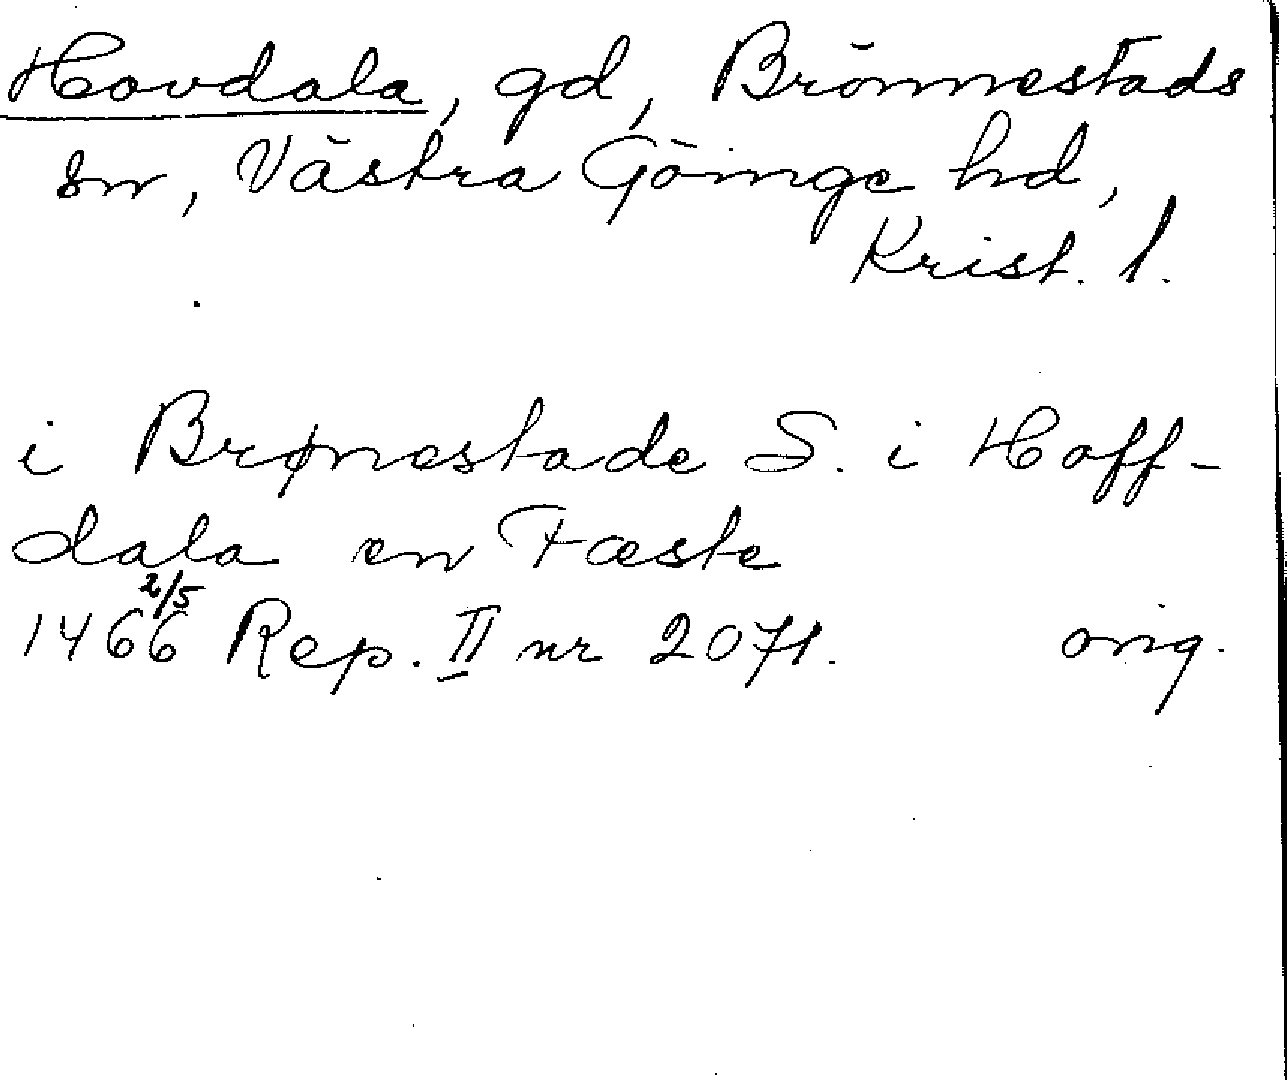 Hovdala, gd, Brönnestads
sn, Västra Göinge hd,
Krist. l.
i Brønestade S. i Hoff-
dala en Fæste
2/5
1466 Rep. II nr 2071. orig.